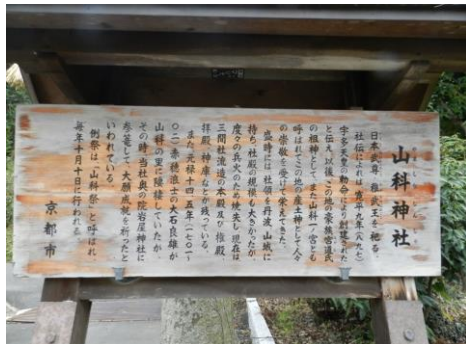 山科神社
日本武尊、稚武王を祀る。
社伝によれば、寛平九年(八九七)
宇多天皇の勅命により創建された
と伝え、以後この地の豪族宮道氏
の祖神として、また山科一宮とも
呼ばれてこの地の産土神として人々
の崇敬を受けて栄えてきた。
盛時には、社領を丹波、山城に
持ち、社殿の規模も大きかったが、
度々の兵火のため焼失し現在は
三間社流造の本殿及び、権殿
拝殿、神庫などが残っている。
また、元禄十四・五年(一七〇一・
〇二)赤穂浪士の大石良雄が
山科の里に隠棲していたが
その時、当社奥の院岩屋神社に
参篭して、大願成就を祈ったと
いわれている。
例祭は「山科祭」と呼ばれ
毎年十月十日に行われる。
京都市